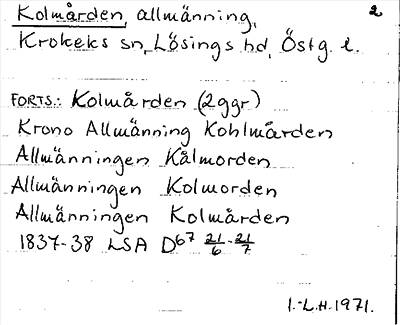 Kolmården, allmänning, 2
Krokeks sn, Lösings hd, Östg. l.
FORTS.: Kolmården (2ggr)
Krono Allmänning Kohlmården
Allmänningen Kålmorden
Allmänningen Kolmorden
Allmänningen Kolmården
1837-38 LSA D67 21/6-21/7
I.-L.H. 1971.